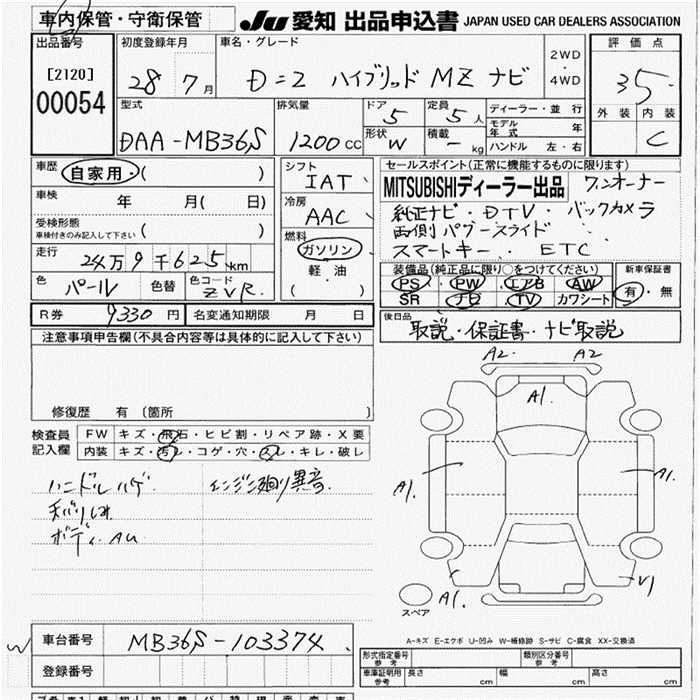 車内保管・守衛保管 JU 愛知 出品申込書 JAPAN USED CAR DEALERS ASSOCIATION
出品番号 初度登録年月 車名・グレード 2WD ・ 4WD 評価点
[2120] 00054 28年 7月 D=2 ハイブリッド MZ ナビ 35
外装 内装 C
型式 排気量 ドア 5 定員 5人 ディーラー・並行
DAA-MB36S 1200CC 形状 W 積載 - kg モデル年式 年 ハンドル 左・右
車歴 自家用・( ) シフト IAT セールスポイント(正常に機能するものに限ります)
車検 年 月( 日) 冷房 AAC MITSUBISHIディーラー出品 ワンオーナー
受検形態 車検付きのみ記入して下さい ( ) 純正ナビ・DTV・バックカメラ
走行 24万9千625km 燃料 ガソリン・軽油 ( ) 両側パワースライド
スマートキー・ETC
色 パール 色替 色コード ZVR 装備品(純正品に限り○をつけてください) 新車保証書
PS PW エアB AW 有・無
SR ナビ TV カワシート
R券 9330円 名変通知期限 月 日 後日品
取説・保証書・ナビ取説
注意事項申告欄(不具合内容等は具体的に記入して下さい)
修復歴 有 〔箇所 〕
検査員記入欄 FW キズ・飛石・ヒビ割・リペア跡・X要
内装 キズ・汚レ・コゲ・穴・スレ・キレ・破レ
ハンドルハゲ エンジン廻り異音
ボディAU
A2 A2
A1
A1 A1
A1
スペア
A-キズ E-エクボ U-凹み W-補修跡 S-サビ C-腐食 XX-交換済
車台番号 MB36S-103374
登録番号
形式指定番号 参考 類別区分番号 参考
車庫証明用 参考 長さ cm 幅 cm 高さ cm